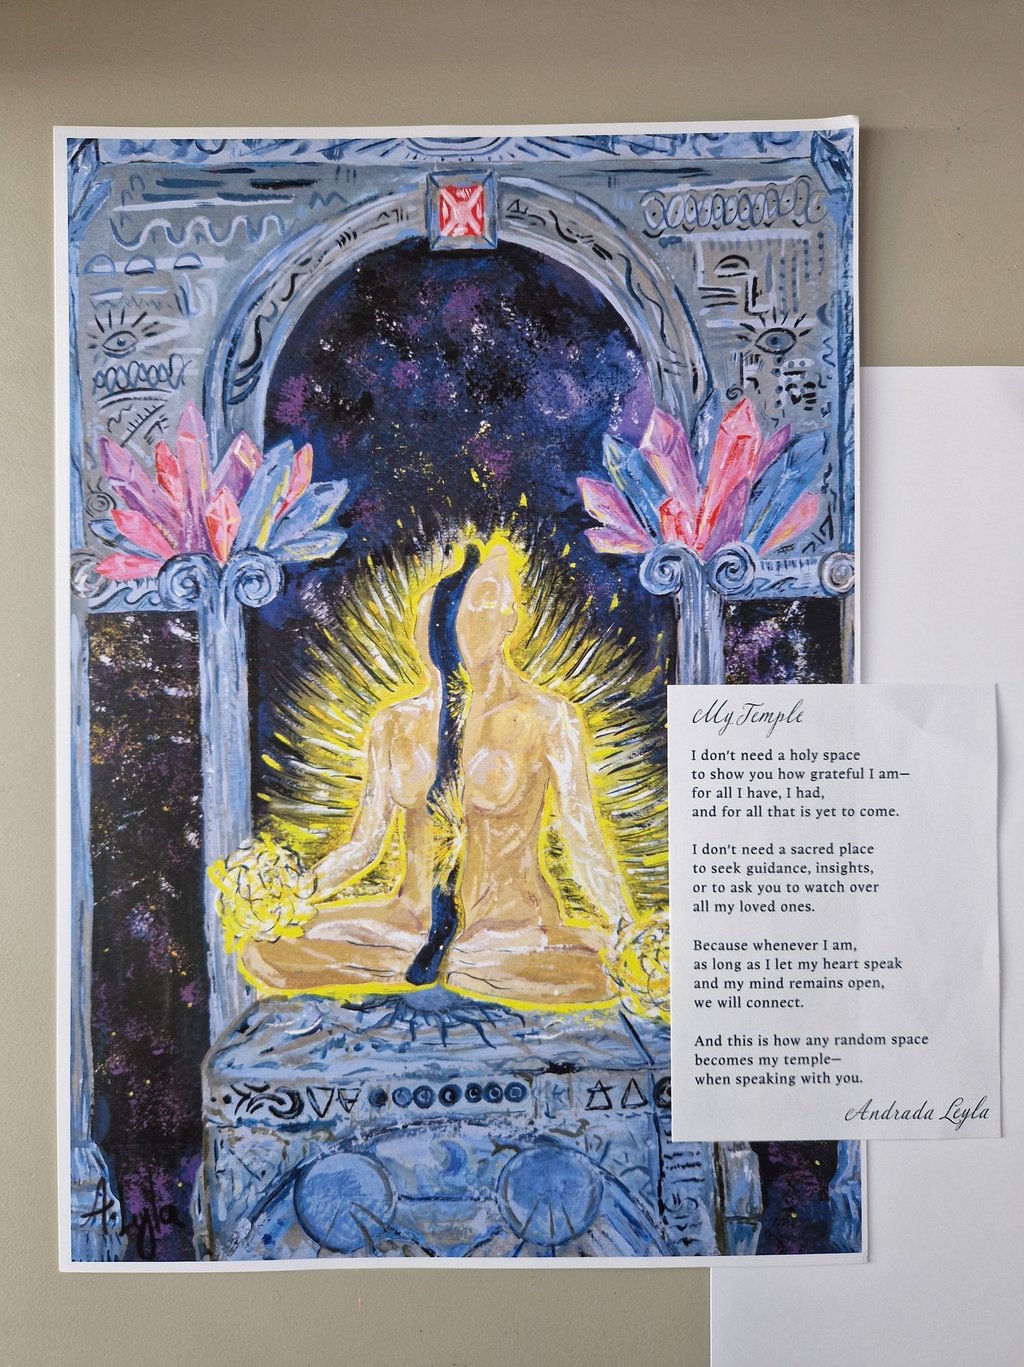 My Temple
I don't need a holy space
to show you how grateful I am—
for all I have, I had,
and for all that is yet to come.
I don't need a sacred place
to seek guidance, insights,
or to ask you to watch over
all my loved ones.
Because whenever I am,
as long as I let my heart speak
and my mind remains open,
we will connect.
And this is how any random space
becomes my temple—
when speaking with you.
Andrada Leyla
A. Leyla